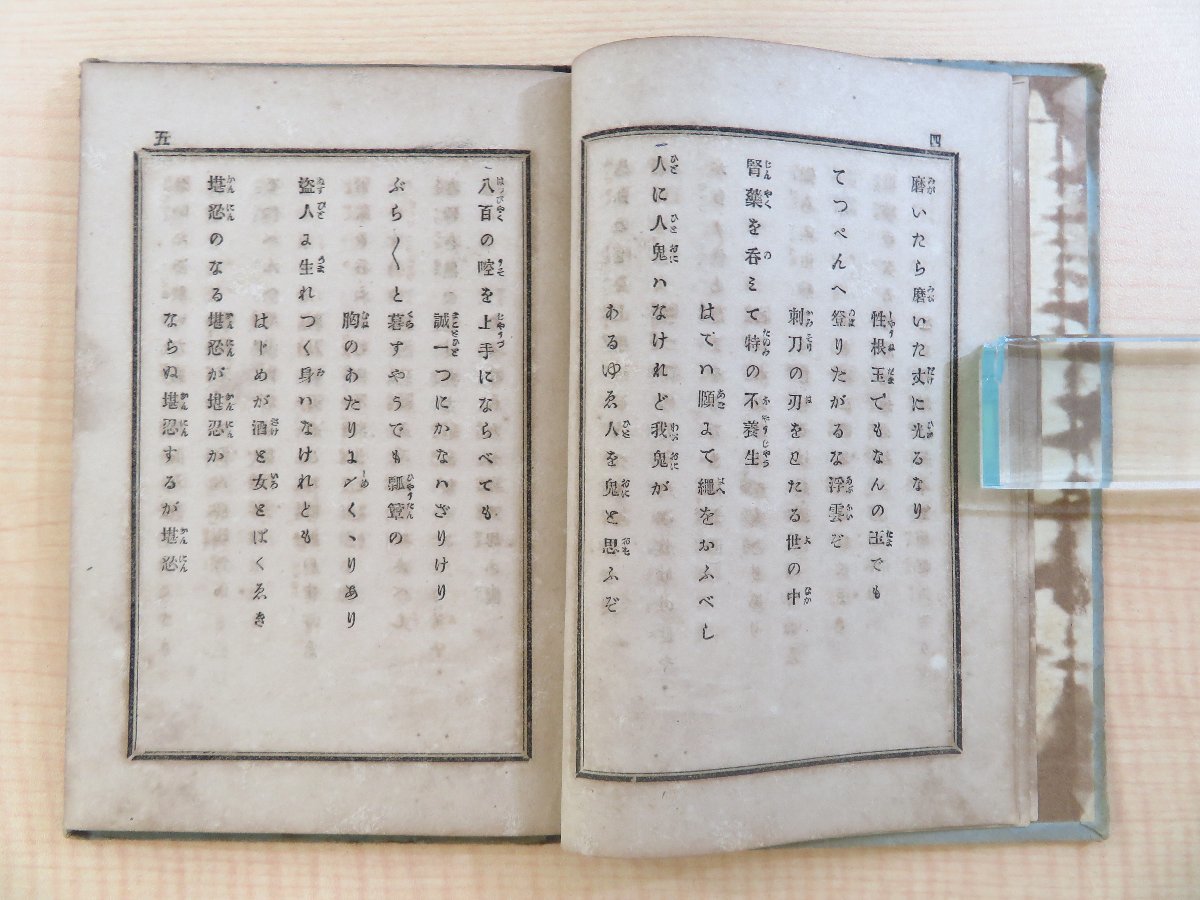 四
磨いたら磨いた丈に光るなり
性根玉でもなんの玉でも
てつぺんへ登りたがるな浮雲ぞ
剃刀の刃をわたる世の中
腎藥を呑ミて特の不養生
はてハ顋にて繩をかふべし
一人に人鬼ハなけれど我鬼が
あるゆゑ人を鬼と思ふぞ
五
一八百の啌を上手にならべても
誠一つにかなハざりけり
ぶら〱と暮すやうでも瓢簟の
胸のあたりに〆くゝりあり
盜人に生れつく身ハなけれとも
はじめが酒と女とばくゑき
堪忍のなる堪忍が堪忍か
ならぬ堪忍するが堪忍